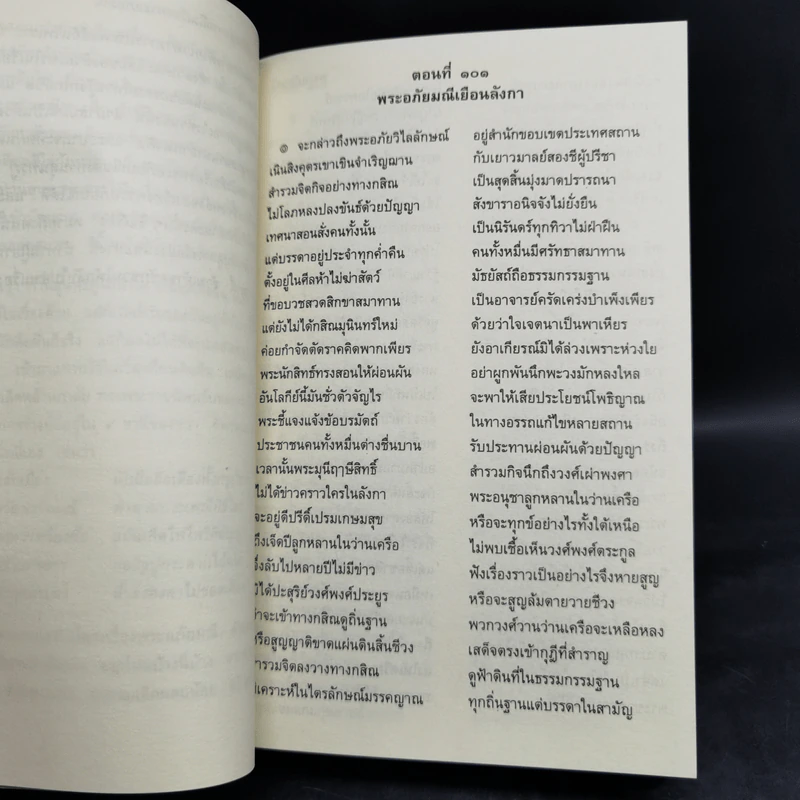 ตอนที่ ๑๐๑
พระอภัยมณีเยือนลังกา
๏ จะกล่าวถึงพระอภัยวิไลลักษณ์ อยู่สำนักขอบเขตประเทศสถาน
เนินสิงคุตรเขาเขินจำเริญฌาน กับเยาวมาลย์สองชีผู้ปรีชา
สำรวมจิตกิจอย่างทางกสิณ เป็นสุดสิ้นมุ่งมาดปรารถนา
ไม่โลภหลงปลงขันธ์ด้วยปัญญา สังขาราอนิจจังไม่ยั่งยืน
เทศนาสอนสั่งคนทั้งนั้น เป็นนิรันดร์ทุกทิวาไม่ฝ่าฝืน
แต่บรรดาอยู่ประจำทุกค่ำคืน คนทั้งหมื่นมีศรัทธาสมาทาน
ตั้งอยู่ในศีลห้าไม่ฆ่าสัตว์ มัธยัสถ์ถือธรรมกรรมฐาน
ที่ขอบวชสวดสิกขาสมาทาน เป็นอาจารย์ครัดเคร่งบำเพ็งเพียร
แต่ยังไม่ได้กสิณมุนินทร์ใหม่ ด้วยว่าใจเจตนาเป็นพาเหียร
ค่อยกำจัดตัดราคคิดพากเพียร ยังอาเกียรณ์มิได้ล่วงเพราะห่วงใย
พระนักสิทธ์ทรงสอนให้ผ่อนผัน อย่าผูกพันนึกพะวงมักหลงใหล
อันโลกีย์นี้มันชั่วตัวจัญไร จะพาให้เสียประโยชน์โพธิญาณ
พระชี้แจงแจ้งข้อบรมัตถ์ ในทางอรรถแก้ไขหลายสถาน
ประชาชนคนทั้งหมื่นต่างชื่นบาน รับประทานผ่อนผันด้วยปัญญา
เวลานั้นพระมุนีฤๅษีสิทธิ์ สำรวมกิจนึกถึงวงศ์เผ่าพงศา
ไม่ได้ข่าวคราวใครในลังกา พระอนุชาลูกหลานในว่านเครือ
จะอยู่ดีปรีดิ์เปรมเกษมสุข หรือจะทุกข์อย่างไรทั้งใต้เหนือ
ถึงเจ็ดปีลูกหลานในว่านเครือ ไม่พบเชื้อเห็นวงศ์พงศ์ตระกูล
จึ่งลับไปหลายปีไม่มีข่าว ฟังเรื่องราวเป็นอย่างไรจึงหายสูญ
มิได้ปะสุริย์วงศ์พงศ์ประยูร หรือจะสูญล้มตายวายชีวง
ว่าจะเข้าทางกสิณดูถิ่นฐาน พวกวงศ์วานว่านเครือจะเหลือหลง
หรือสูญญาติขาดแผ่นดินสิ้นชีวง เสด็จตรงเข้ากุฎีที่สำราญ
สำรวมจิตลงวางทางกสิณ ดูฟ้าดินที่ในธรรมกรรมฐาน
พิเคราะห์ในไตรลักษณ์มรรคญาณ ทุกถิ่นฐานแต่บรรดาในสามัญ